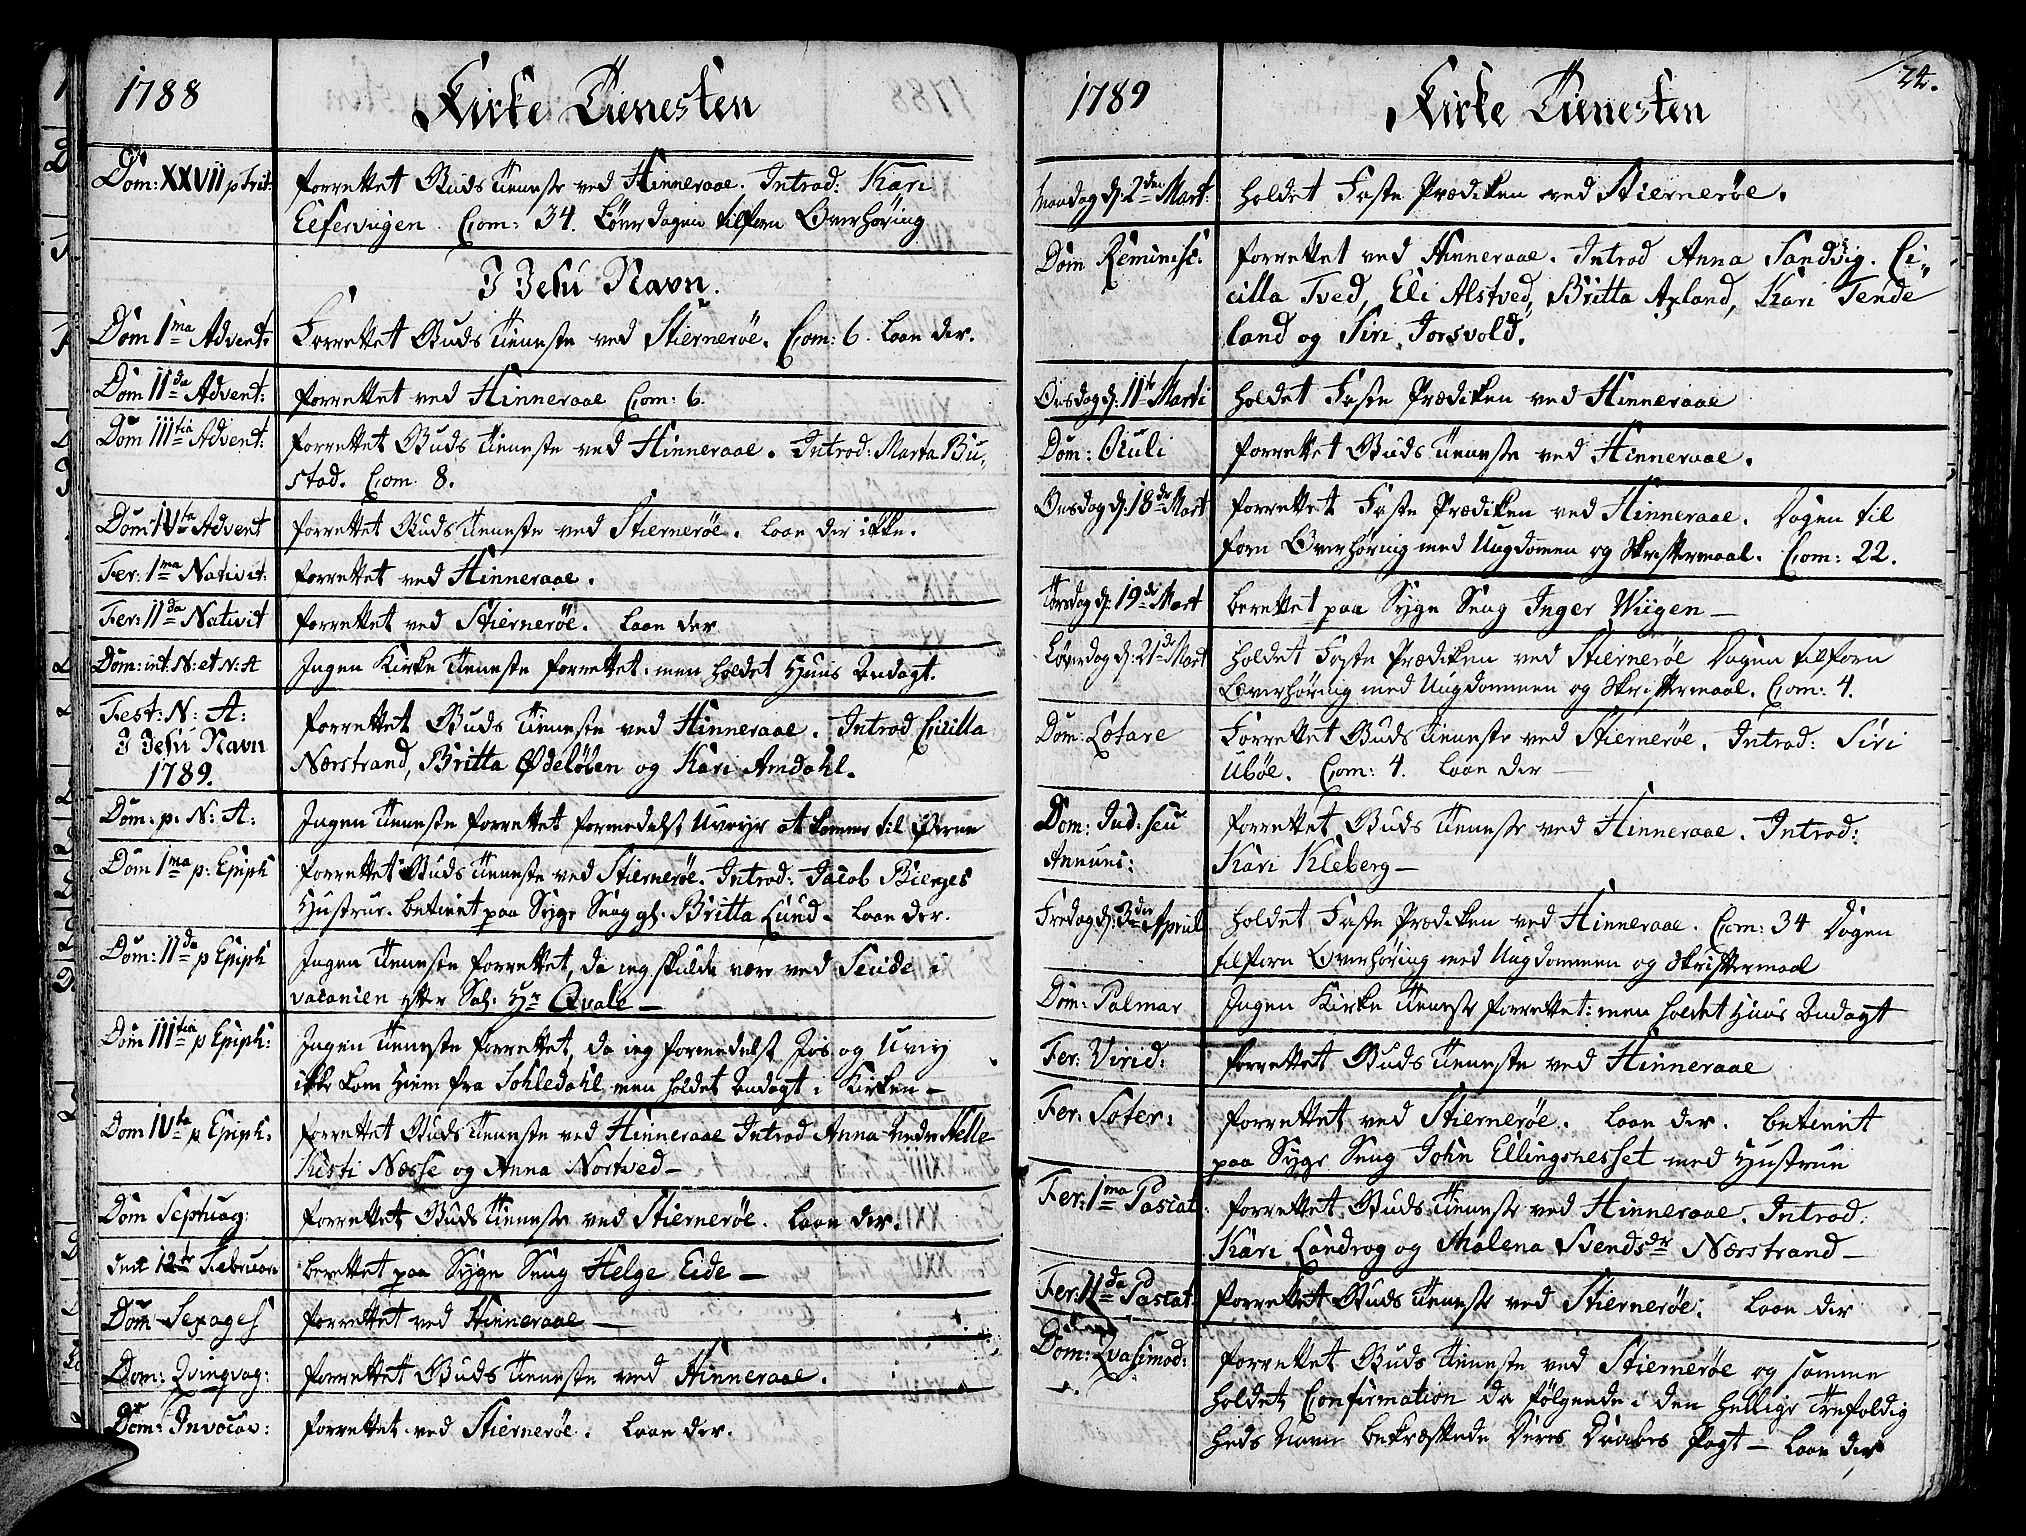 1788 Kirke Tienesten
Dom: XXVII p Trit: forrettet Guds Tieneste ved Hinneraae. Introd: Kari
Elfervigen. Com: 34. Löverdagen tilforn Overhøring
I Jesu Navn.
Dom 1ma Advent: Forrettet Guds Tieneste ved Stiernerøe. Com: 6. Laae der.
Dom 11da Advent: forrettet ved Hinneraae Com: 6.
Dom 111tia Advent: forrettet Guds Tieneste ved Hinneraae. Introd: Marta Bu„
stad. Com 8.
Dom IVta Advent forrettet Guds Tieneste ved Stiernerøe. Laae der ikke.
Fer: 1ma Nativit: forrettet ved Hinneraae.
Fer: 11da Nativit forrettet ved Stiernerøe. Laae der
Dom: int: N: et N: A Ingen Kirke Tieneste forrettet: men holdet Huus Andagt.
Fest: N: A: forrettet Guds Tieneste ved Hinneraae. Introd Cicilla
I Jesu Navn Nærstrand, Britta Ødelöien og Kari Amdahl.
1789.
Dom: p: N: A: Ingen Tieneste forrettet formedelst Uveyr at komme til Øerne
Dom 1ma p: Epiph forrettet Guds Tieneste ved Stiernerøe. Introd: Jacob Bierges
Hustrue. betient paa Syge Seng gl: Britta Lund. Laae der.
Dom: 11da p Epiph Ingen Tieneste forrettet, da ieg skulde være ved Leude i
vacancen efter Sal: Hr Qvale —
Dom 111tia p Epiph: Ingen Tieneste forrettet, da ieg formedelst Iis og Uveyr
ikke kom hiem fra Sohledahl men holdet Andagt i Kirken —
Dom IVta p Epiph: forrettet Guds Tieneste ved Hinneraae Introd Anna Nedre Helle
Kisti Næsse og Anna Nortved —
Dom Septuag: forrettet Guds Tieneste ved Stiernerøe. Laae der.
den 12te Februari berettet paa Syge Seng Helge Eide —
Dom Sexages forrettet ved Hinneraae —
Dom: Qvinqvag: forrettet Guds Tieneste ved Hinneraae.
Dom: Invocav: forrettet ved Stiernerøe. Laae der.
1789 Kirke Tienesten 24.
Mandag d: 2den Mart: holdet Faste Prædiken ved Stiernerøe.
Dom Reminisc: forrettet ved Hinneraae. Introd Anna Sandvig. Ci„
cilla Tved, Eli Alstved, Britta Axland, Kari Tende
land og Siri Jorsvold.
Onsdag d: 11te Marti holdet Faste Prædiken ved Hinneraae
Dom: Oculi forrettet Guds Tieneste ved Hinneraae.
Onsdag d: 18de Mart forrettet Faste Prædiken ved Hinneraae. Dagen til
forn Overhøring med Ungdomen og Skriftermaal. Com: 22.
Torsdag d: 19de Mart berettet paa Syge Seng Inger Wiigen —
Løverdag d: 21de Mart holdet Faste Prædiken ved Stiernerøe Dagen tilforn
Overhøring med Ungdommen og Skriftermaal. Com: 4.
Dom: Lætare Forrettet Guds Tieneste ved Stiernerøe. Introd: Siri
Uböe. Com: 4. Laae der —
Dom: Jud: seu forrettet Guds Tieneste ved Hinneraae. Introd:
Annunc: Kari Kleberg —
Fredag d: 3die April holdet Faste Prædiken ved Hinneraae. Com: 34 Dagen
tilforn Overhøring med Ungdommen og Skriftermaal
Dom: Palmar Ingen Kirke Tieneste forrettet: men holdet Huus Andagt
Fer: Virid: forrettet Guds Tieneste ved Hinneraae
Fer: Soter: forrettet ved Stiernerøe. Laae der. betient
paa Syge Seng John Ellingsnesset med Hustrue
Fer: 1ma Pascat. forrettet Guds Tieneste ved Hinneraae. Introd:
Kari Landrog og Malena Svendsdr Nærstrand —
Fer: 11da Pascat. forrettet Guds Tieneste ved Stiernerøe. Laae der
Dom: Qvasimod: forrettet Guds Tieneste ved Stiernerøe og samme
holdet Confirmation da følgende i den hellige Trefoldig
heds Navn bekræftede Deres Daabes Pagt — Laae der